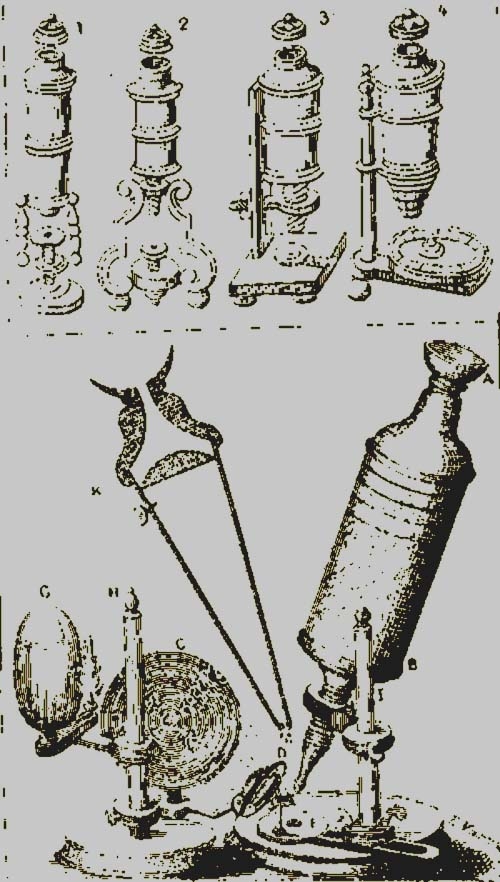 1 2 3 4
A
K
G H C
B
I
D